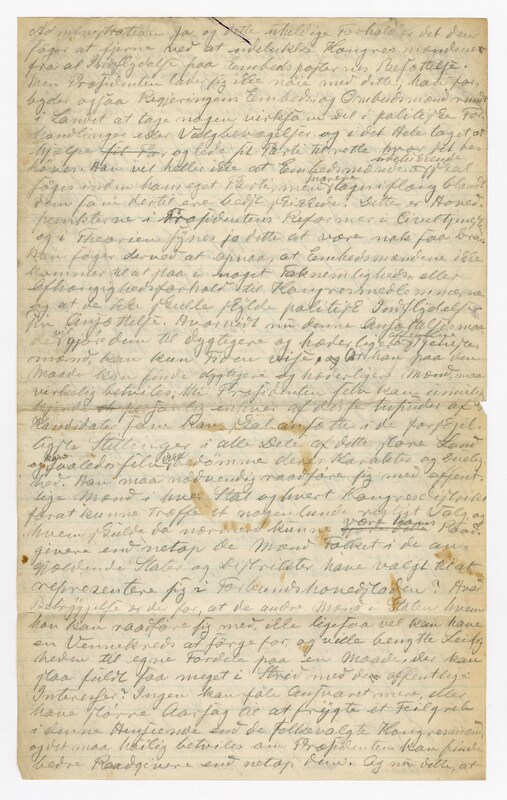 Administrationen Ja, og dette uheldige Forhold er det den
søger at fjerne ved at udelukke Kongresmændene
fra al Indflydelse paa Embedsposternes Besættelse.
Men Præsidenten lader sig ikke nøie med dette; han for-
byder ogsaa Regjeringens Embeds og Ombudsmænd rundt
i Landet at tage nogen virksom Del i politiske For-
handlinger eller Valgbevægelser og i det Hele taget at
hjælpe og lede sit Parti til rette hvor det be-
høves. Han vil heller ikke at Embedsmændene udelukkende skal
søges inden hans eget Parti, men tages iflæng blandt
dem som dertil ere bedst skikkede. Dette er Hoved-
punkterne i Præsidentens Reformer i Civiltjenesten
og i Theorien synes jo dette at være nok saa bra.
Han søger derved at opnaa, at Embedsmændene ikke
kommer til at staa i noget Taknemligheds- eller
Afhængighedsforhold til Kongresmedlemmerne
og at de ikke skulle skylde politisk Indflydelse
sin Ansættelse. Hvorvidt nu denne Ansættelsesmaade
gjøre dem til dygtigere og hæderligere
mænd, kan kun Tiden vise, og at han paa den
Maade kan finde dygtigere og hæderligere Mænd, maa
virkelig betviles. Thi Præsidenten selv kan umulig
kjende personlig enhver af disse tusinder af
Kandidater som han skal ansætte i de forskjel-
ligste Stillinger i alle Dele af dette store Land
og saaledes selv bedømme deres Karakter og Duelig-
hed. Han maa nødvendig raadføre sig med offent-
lige Mænd i hver Stat og hvert Kongresdistrikt
forat kunne træffe et nogenlunde rigtigt Valg, og
hvem skulde da nærmere kunne være hans Raad-
givere end netop de Mænd Folket i de an-
gjældende Stater og Distrikter have valgt til at
repræsentere sig i Forbundshovedstaden? Hvad
Betryggelse er der for, at de andre Mænd i Staten, hvem
han kan raadføre sig med, ikke ligesaa vel kan have
en Vennekreds at sørge for, og ville benytte Leilig-
heden til egne Fordele paa en Maade, der kan
staa fuldt saa meget i Strid med den offentlige
Interesse? Ingen kan føle Ansvaret mere, eller
have større Aarsag til at frygte et Feilgreb
i denne Henseende end de Folkevalgte Kongresmænd,
og det maa billig betviles om Præsidenten kan finde
bedre Raadgivere end netop dem. Og nu dette, at